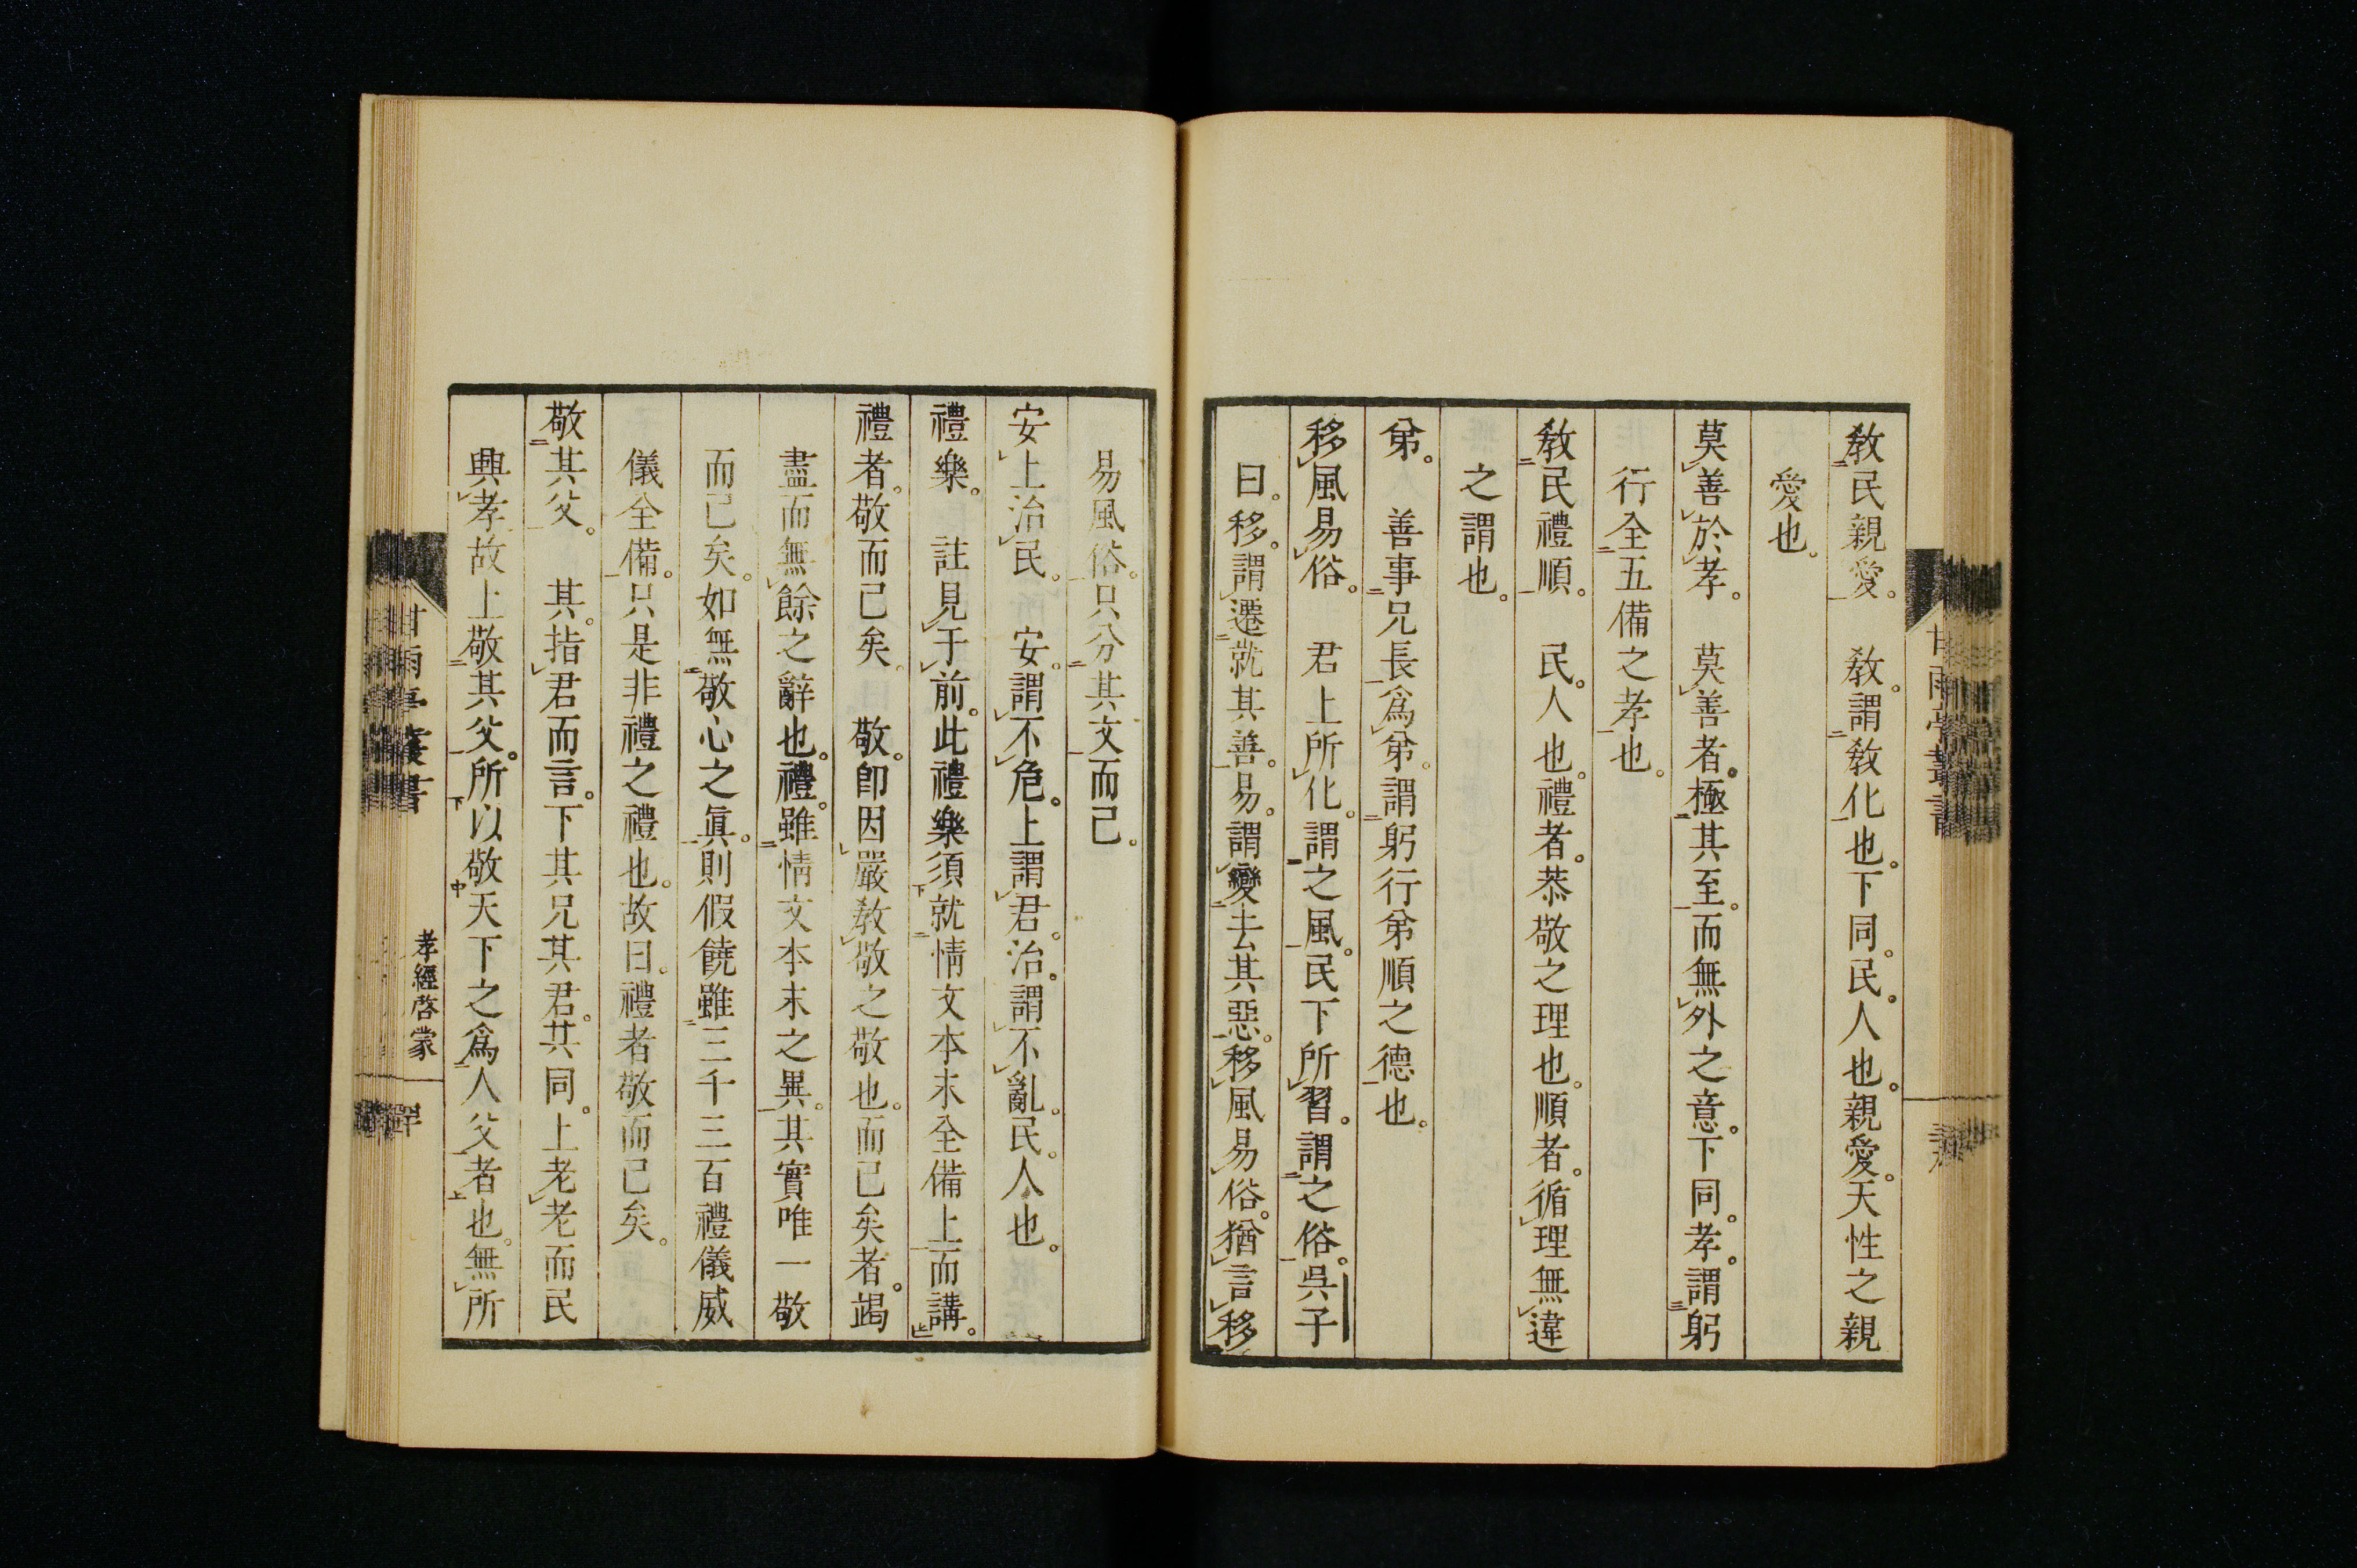 教民親愛。　教。謂教化也。下同。民。人也。親愛。天性之親
愛也。
莫善於孝。　莫善者。極其至。而無外之意。下同。孝。謂躬
行全五備之孝也。
教民禮順。　民。人也。禮者。恭敬之理也。順者。循理無違
之謂也。
弟。　善事兄長爲弟。謂躬行弟順之德也。
移風易俗。　君上所化。謂之風。民下所習。謂之俗。吳子
曰。移。謂遷就其善。易。謂變去其惡。移風易俗。猶言移
易風俗。只分其文而已。
安上治民。　安。謂不危。上謂君。治。謂不亂。民。人也。
禮樂。　註見于前。此禮樂須就情文本末全備上而講。
禮者。敬而已矣。　敬。卽因嚴教敬之敬也。而已矣者。竭
盡而無餘之辭也。禮。雖情文本末之異。其實唯一敬
而已矣。如無敬心之眞。則假饒雖三千三百禮儀威
儀全備。只是非禮之禮也。故曰。禮者敬而已矣。
敬其父。　其。指君而言。下其兄其君。其同。上老老而民
興孝故上敬其父。所以敬天下之爲人父者也。無所
甘雨亭叢書
孝經啓蒙